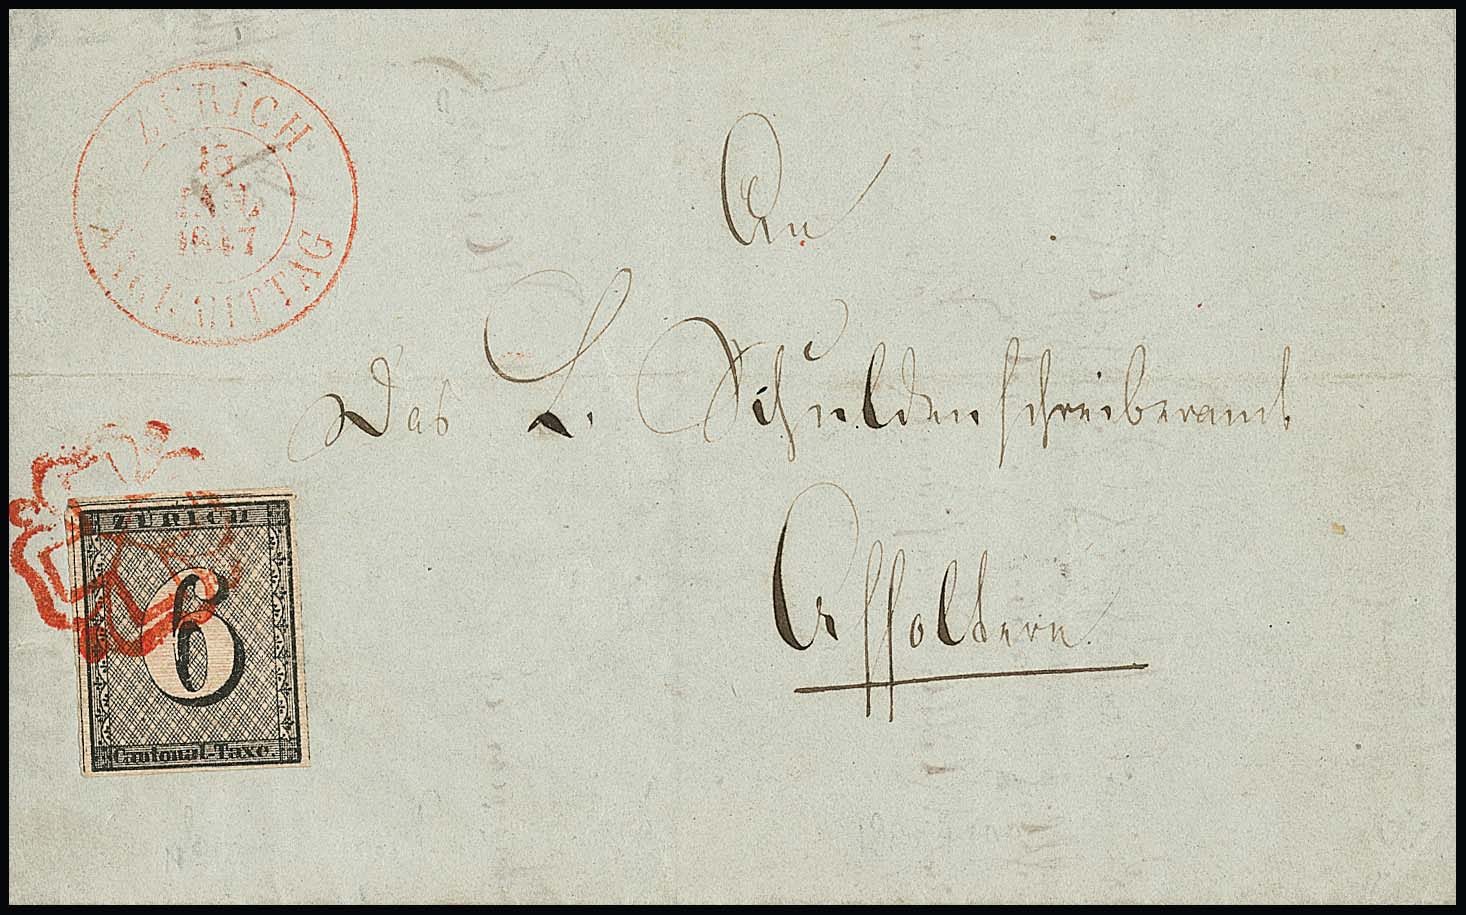 ZÜRICH
1847
NACHMITTAG
An
Das L. Schuldenschreiberamt
Affoltern
ZÜRICH
6
Cantonal-Taxe.